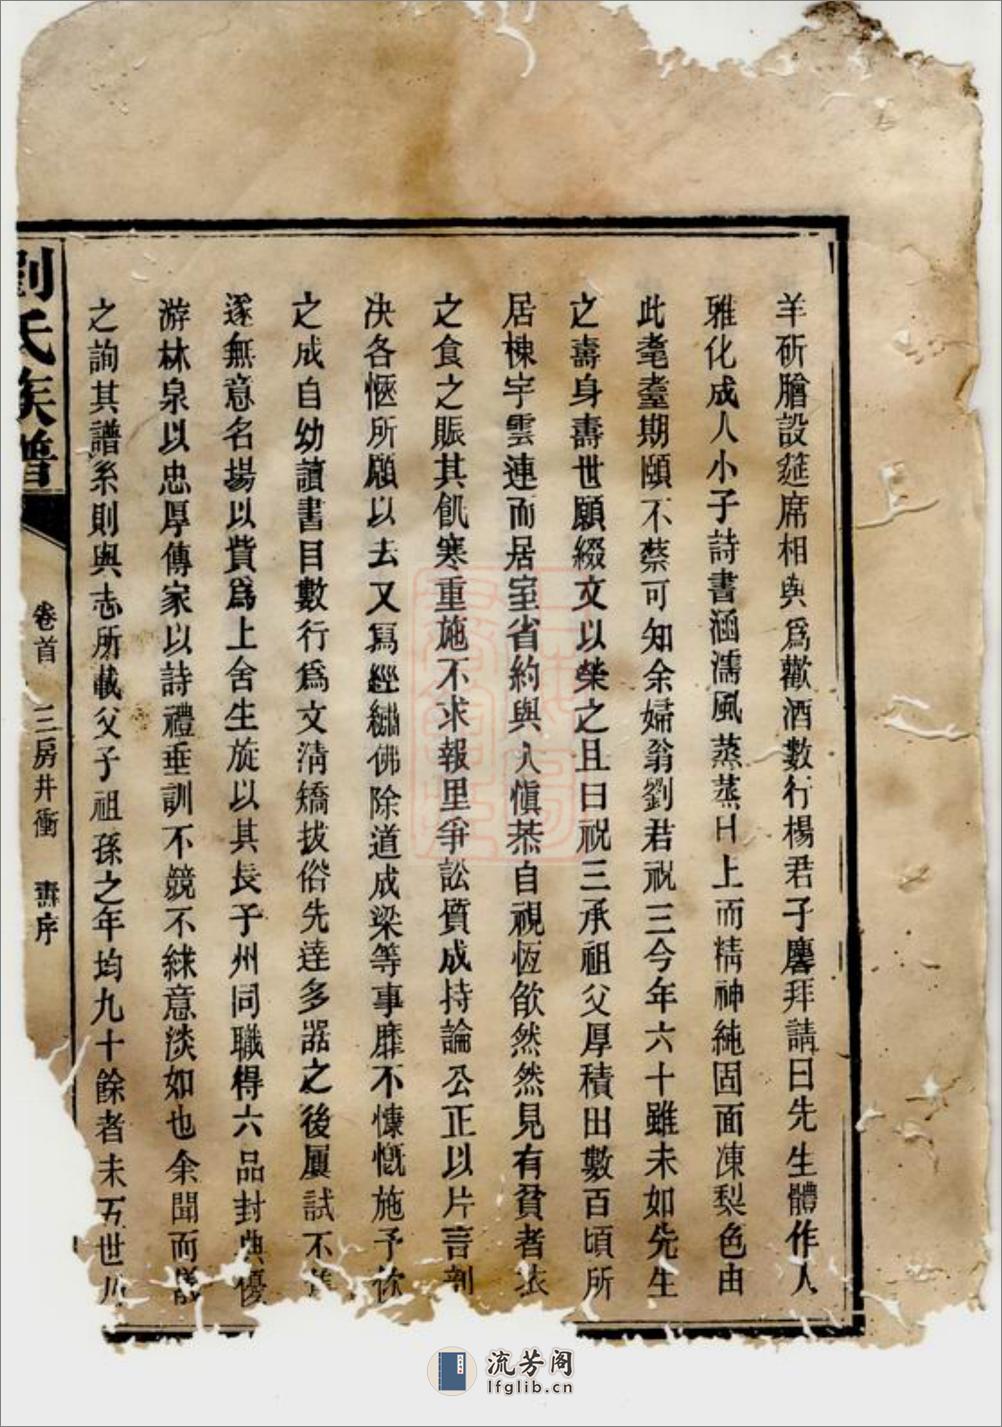 羊斫膾設筵席相與爲歡酒數行楊君子麐拜請曰先生體作人
雅化成人小子詩書涵濡風蒸蒸日上而精神純固面凍梨色由
此耄耋期頤不蔡可知余婦翁劉君祝三今年六十雖未如先生
之壽身壽世願綴文以榮之且曰祝三承祖父厚積田數百頃所
居棟宇雲連而居室省約與人愼恭自視恆欿然然見有貧者衣
之食之賑其飢寒重施不求報里爭訟質成持論公正以片言剖
决各愜所願以去又爲經繡佛除道成梁等事靡不慷慨施予欣
之成自幼讀書目數行爲文淸矯拔俗先達多器之後屢試不售
遂無意名場以貲爲上舍生旋以其長子州同職得六品封典優
游林泉以忠厚傳家以詩禮垂訓不競不絿意淡如也余聞而
之詢其譜系則與志所載父子祖孫之年均九十餘者未五世
劉氏族譜
卷首
三房井衝
壽序
流芳阁
lfglib.cn